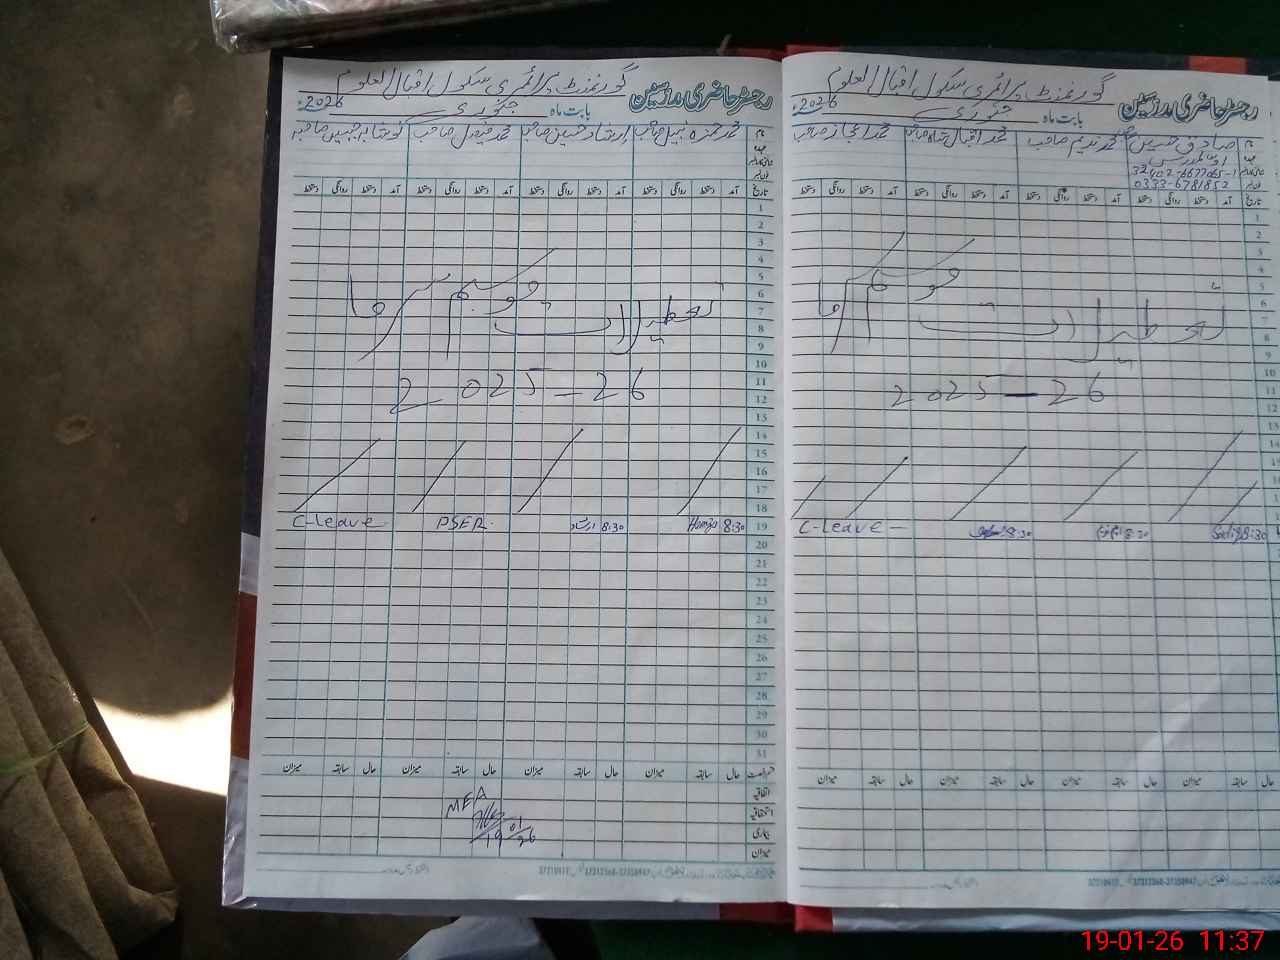 رجسٹر حاضری مدرسین
گورنمنٹ پرائمری سکول اقبال العلوم
بابت ماہ جنوری 2026
نام
محمد حمزہ نبیل صاحب
ارشاد حسین صاحب
محمد فیصل صاحب
تاریخ
آمد دستخط روانگی دستخط آمد دستخط روانگی دستخط آمد دستخط روانگی دستخط آمد دستخط روانگی دستخط
1
2
3
4
5
6
7
8
9
10
11
12
13
14
15
16
17
18
19
20
21
22
23
24
25
26
27
28
29
30
31
تعطیلات موسم سرما
2025-26
Hamza 8:30
ارشاد 8:30
PSER.
C-leave
حال سابقہ میزان حال سابقہ میزان حال سابقہ میزان حال سابقہ میزان
اتفاقیہ
استحقاقیہ
بیماری
میزان
MEA
19/01/26
رجسٹر حاضری مدرسین
گورنمنٹ پرائمری سکول اقبال العلوم
بابت ماہ جنوری 2026
نام
صادق حسین
محمد ندیم صاحب
محمد اقبال شاہ صاحب
محمد اعجاز صاحب
32402-6677065-1
0333-6781852
تاریخ
آمد دستخط روانگی دستخط آمد دستخط روانگی دستخط آمد دستخط روانگی دستخط
1
2
3
4
5
6
7
8
9
10
11
12
13
14
تعطیلات موسم سرما
2025-26
Sadiq 8:30
8:30
8:30
C-leave
حال سابقہ میزان حال سابقہ میزان حال سابقہ میزان
19-01-26 11:37